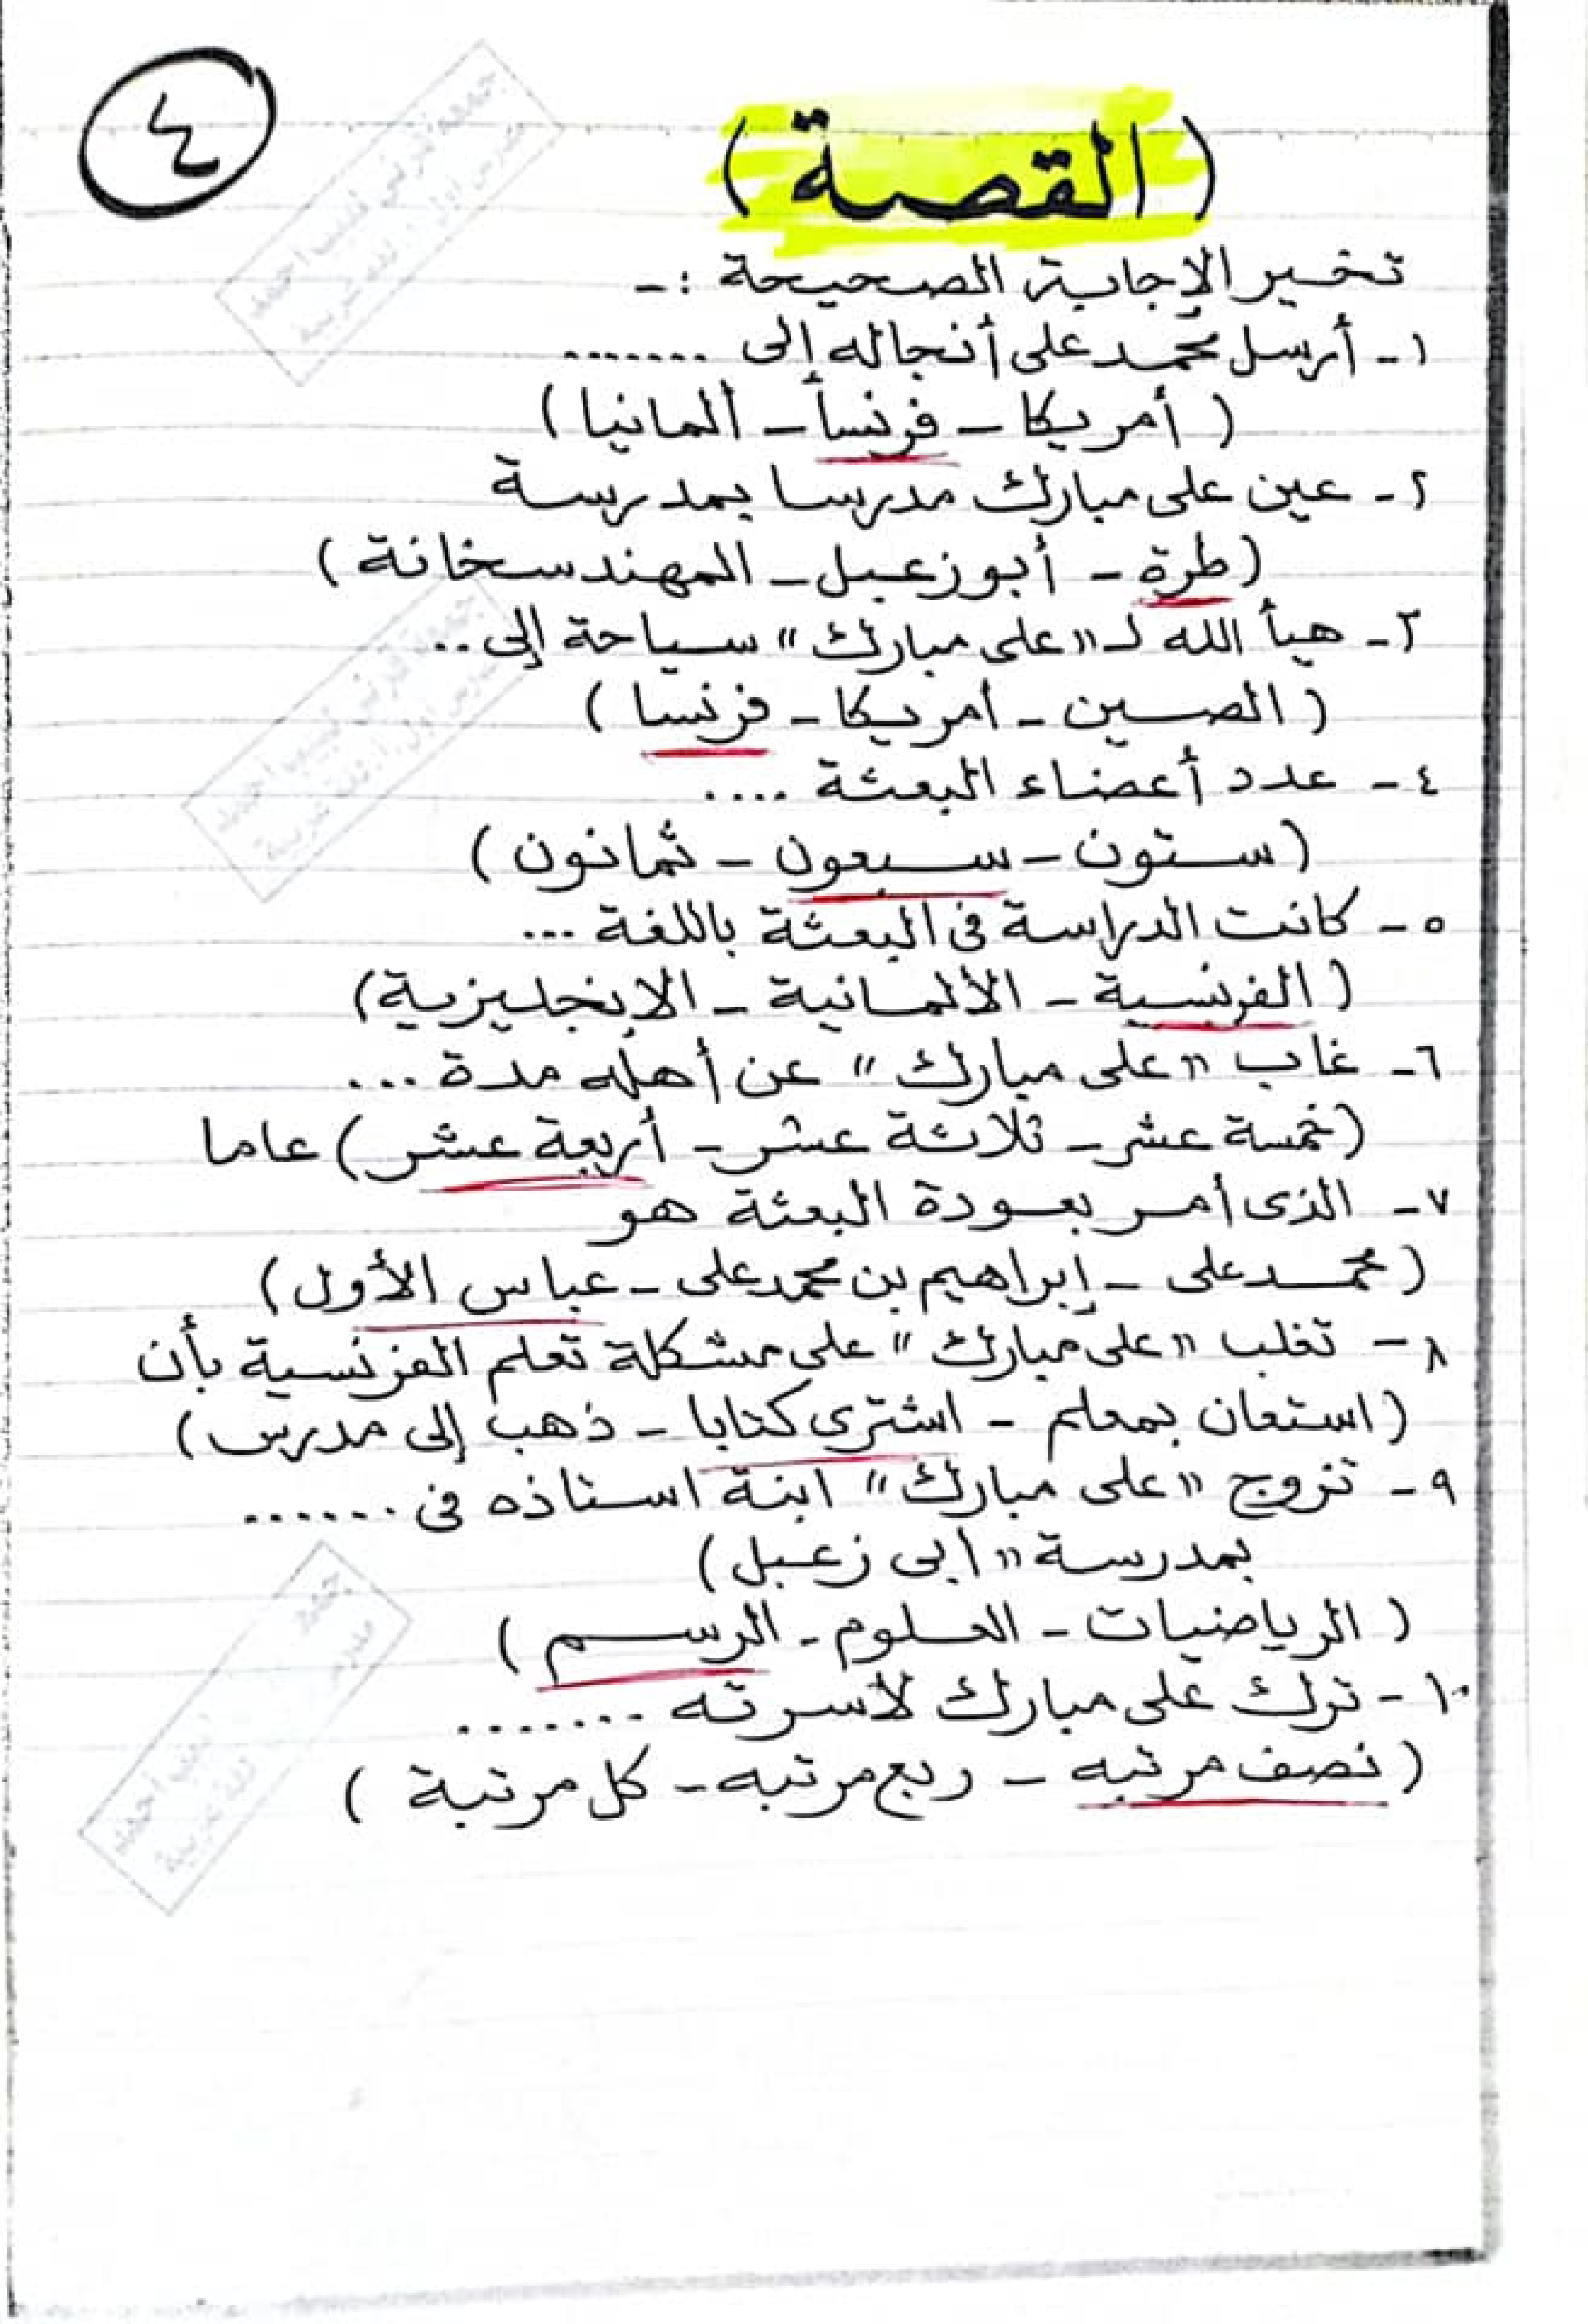 ٤
(القصة)
تخير الإجابة الصحيحة :-
١- أرسل محمد على أنجاله إلى .......
( أمريكا - فرنسا - ألمانيا )
٢- عين على مبارك مدرسا بمدرسة
(طرة - أبو زعبل - المهندسخانة )
٣- هيأ الله لـ "على مبارك" سياحة إلى ..
( الصين - أمريكا - فرنسا )
٤- عدد أعضاء البعثة ....
( ستون - سبعون - ثمانون )
٥- كانت الدراسة فى البعثة باللغة ...
( الفرنسية - الألمانية - الإنجليزية )
٦- غاب "على مبارك" عن أهله مدة ...
(خمسة عشر - ثلاثة عشر - أربعة عشر ) عاما
٧- الذى أمر بعودة البعثة هو
( محمد على - إبراهيم بن محمد على - عباس الأول )
٨- تغلب "على مبارك" على مشكلة تعلم الفرنسية بأن
( استعان بمعلم - اشترى كتابا - ذهب إلى مدرس )
٩- تزوج "على مبارك" ابنة استاذه فى ......
بمدرسة "أبى زعبل )
( الرياضيات - العلوم - الرسم )
١٠- ترك على مبارك لأسرته .......
( نصف مرتبه - ربع مرتبه - كل مرتبة )